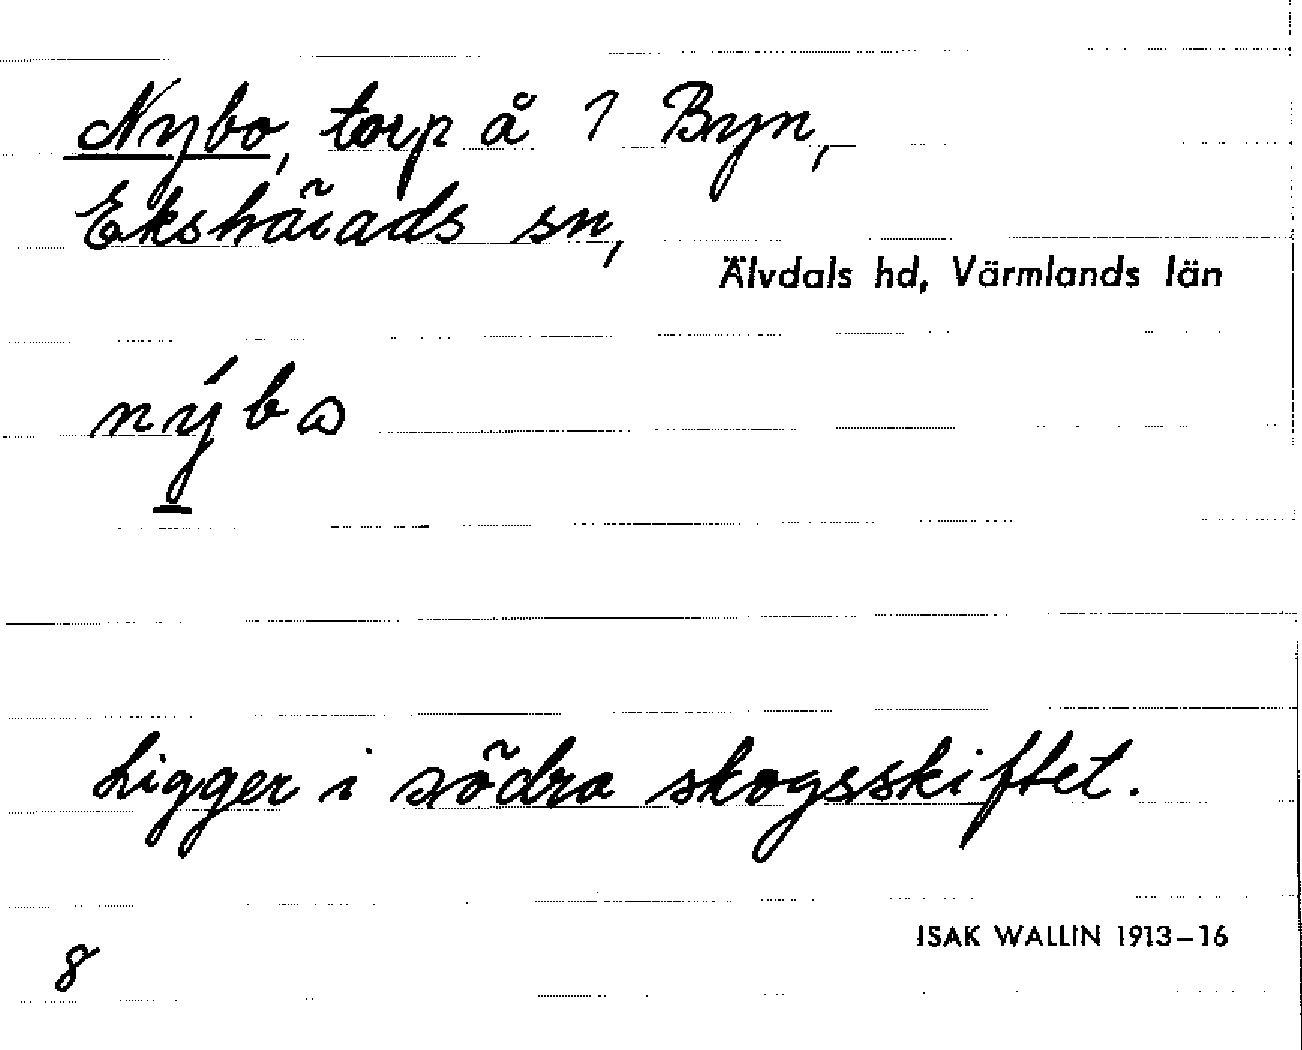 Nybo, torp å 1 Byn,
Ekshärads sn,
Älvdals hd, Värmlands län
nýbω
Ligger i södra skogsskiftet.
ISAK WALLIN 1913–16
8